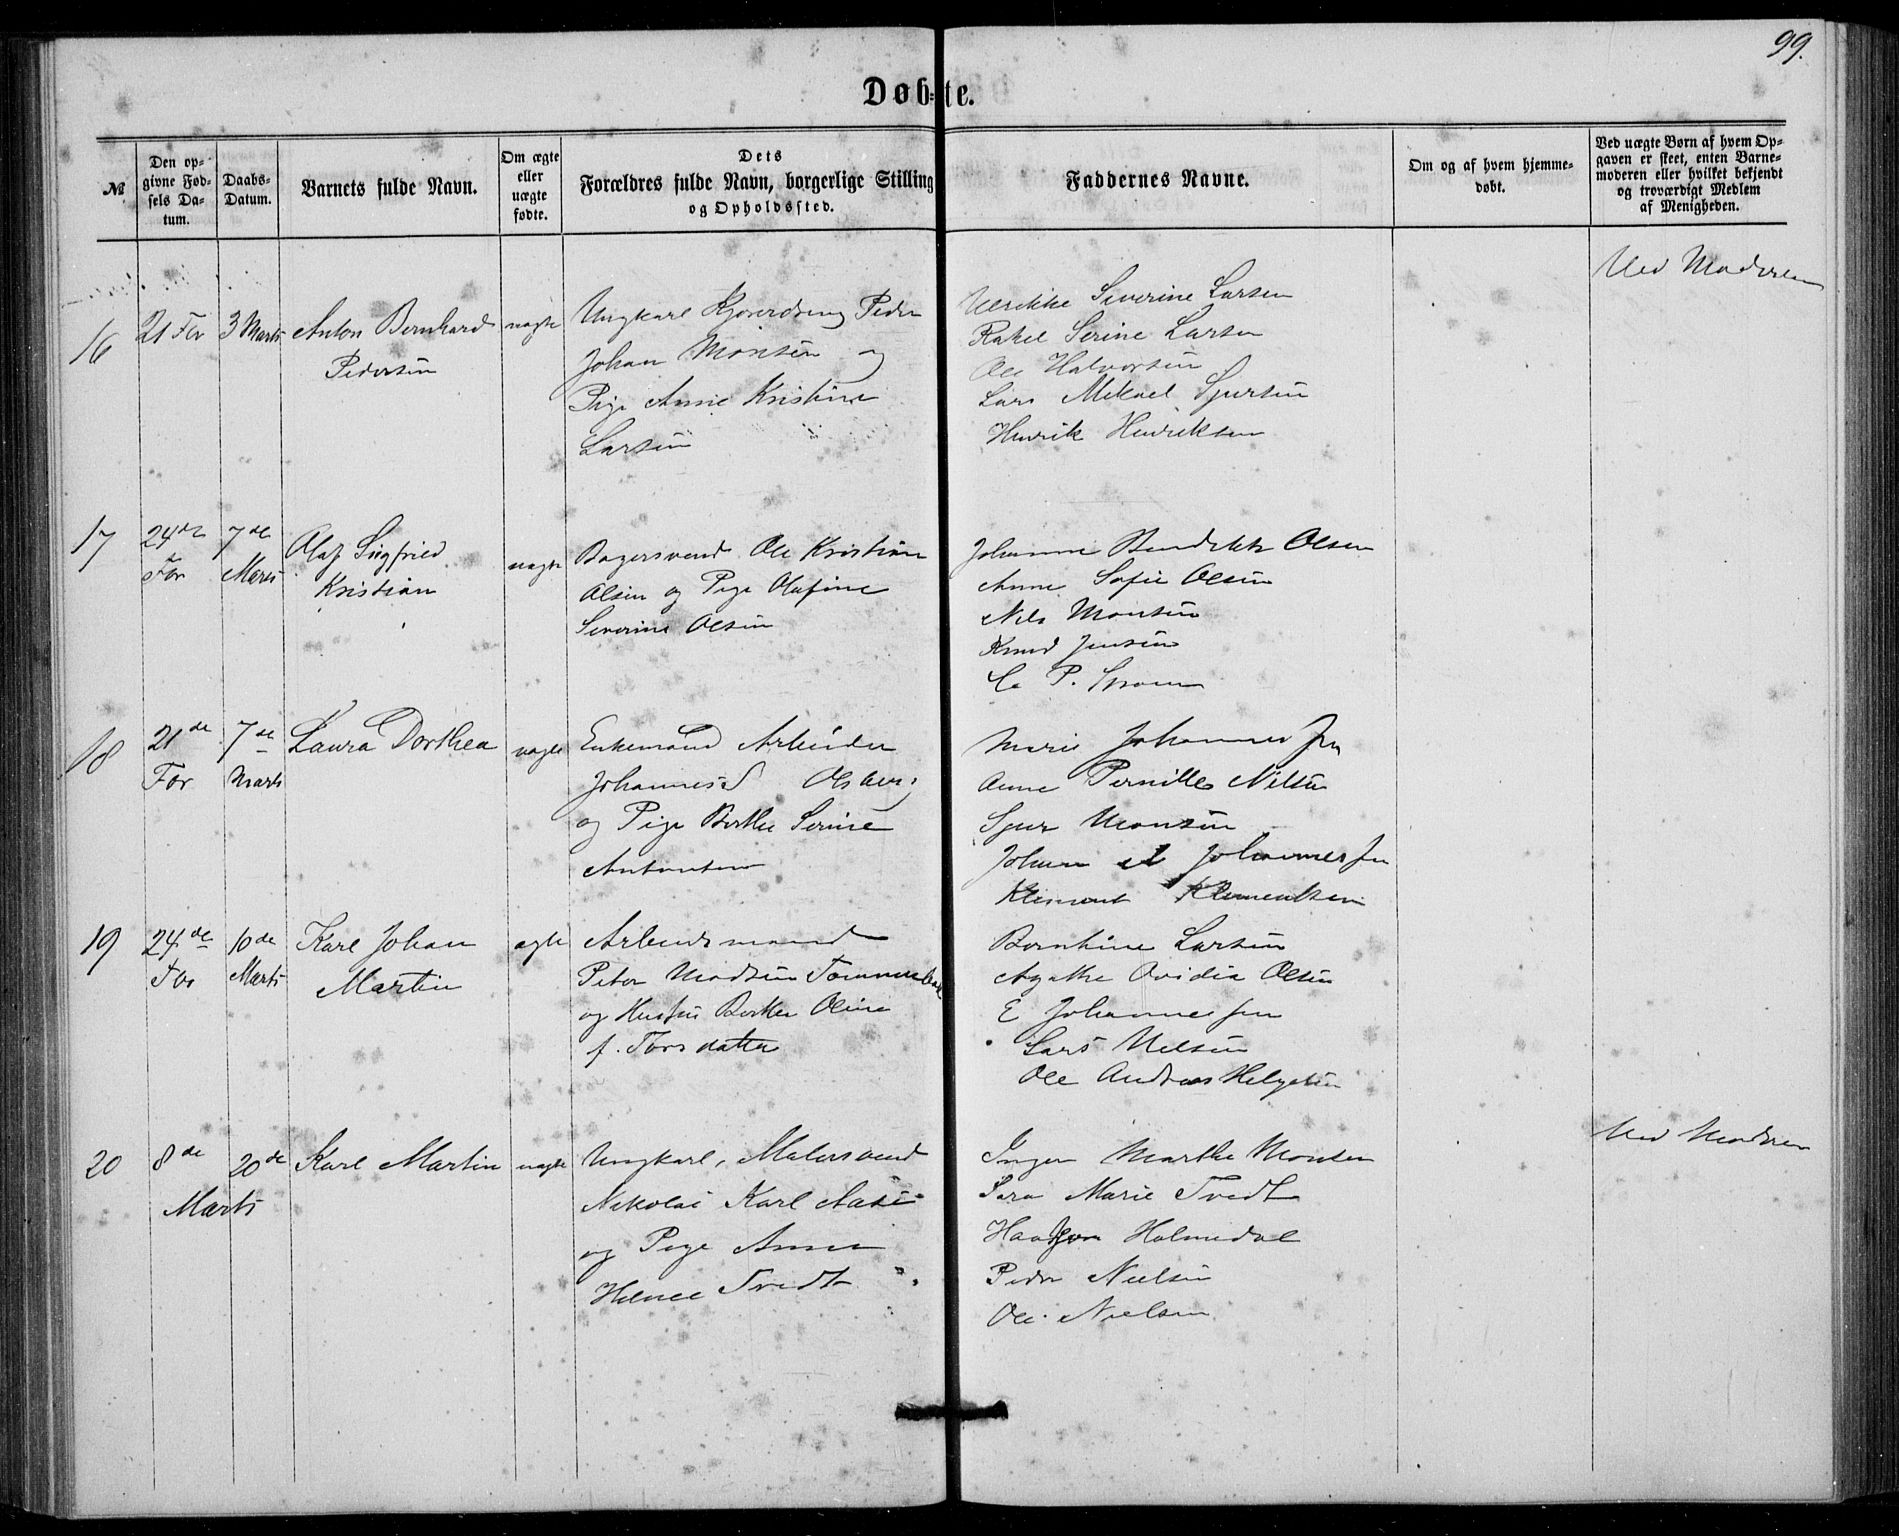 99.
Døbte.
№
Den opgivne Fødsels Datum.
Daabs-Datum.
Barnets fulde Navn.
Om ægte eller uægte fødte.
Dets Forældres fulde Navn, borgerlige Stilling og Opholdssted.
Faddernes Navne.
Om og af hvem hjemmedøbt.
Ved uægte Børn af hvem Opgaven er skeet, enten Barnemoderen eller hvilket bekjendt og troværdigt Medlem af Menigheden.
16
21 Febr
3 Marts
Anton Bernhard
Pedersen
uægte
Ungkarl Peder
Johan Monsen og
Pige Anne Kristine
Larsen
Ulrikke Severine Larsen
Rakel Serine Larsen
Ole Halvorsen
Lars Mikael Sjursen
Henrik Henriksen
Ved Moderen
17
24de
Febr
7de
Marts
Olaf Sigfried
Kristian
uægte
Bagersvend Ole Kristian
Olsen og Pige Olafine
Severine Olsen
Johanne Bendikte Olsen
Anne Sofie Olsen
Nils Monsen
Knud Jensen
P.
18
21de
Febr
7de
Marts
Laura Dorthea
uægte
Enkemand Arbeider
Johannes Olsen
og Pige Berthe Serine
Antonsen
Marie Johannesen
Anne Pernille Nilsen
Sjur Monsen
Johan Johannesen
Klement Klementsen
19
24de
Febr
10de
Marts
Karl Johan
Martin
ægte
Arbeidsmand
Peter Madsen
og Hustru Berthe Oline
f. Torsdatter
Bernhine Larsen
Agathe Ovidia Olsen
E Johannesen
Lars Nilsen
Ole Andreas Helgesen
20
8de
20de
Marts
Karl Martin
uægte
Ungkarl, Malersvend
Nikolai Karl
og Pige Anna
Tvedt
Inger Marthe Monsen
Sara Marie Tvedt
Haakon Holmedal
Peder Nielsen
Ole Nielsen
Ved Moderen